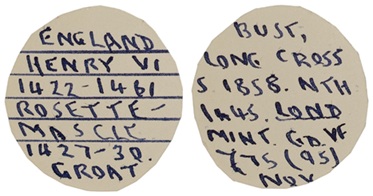 ENGLAND
HENRY VI
1422-1461
ROSETTE-
MASCLE
1427-30.
GROAT
BUST,
LONG CROSS
S 1858. NTH
1445. LOND
MINT. GD VF
775 (95)
NOV